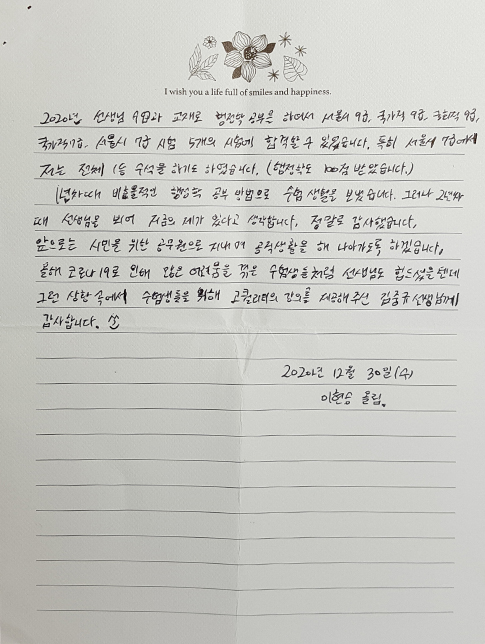 I wish you a life full of smiles and happiness.
2020년 선생님 수업과 교재로 행정학 공부를 하여서 서울시 9급, 국가직 9급, 국회직 9급,
국가직 7급, 서울시 7급 시험 5개의 시험에 합격할 수 있었습니다. 특히 서울시 7급에서
저는 전체 1등 수석을 하기도 하였습니다. (행정학도 100점 받았습니다.)
1년차때 비효율적인 행정학 공부 방법으로 수험 생활을 보냈습니다. 그러나 2년차
때 선생님을 뵈어 지금의 제가 있다고 생각합니다. 정말로 감사했습니다.
앞으로는 시민을 위한 공무원으로 지내며 공직생활을 해 나아가도록 하겠습니다.
올해 코로나19로 인해 많은 어려움을 겪은 수험생들처럼 선생님도 힘드셨을텐데
그런 상황 속에서 수험생들을 위해 고퀄리티의 강의를 제공해주신 김중규 선생님께
감사합니다.
2020년 12월 30일(수)
이현승 올림.